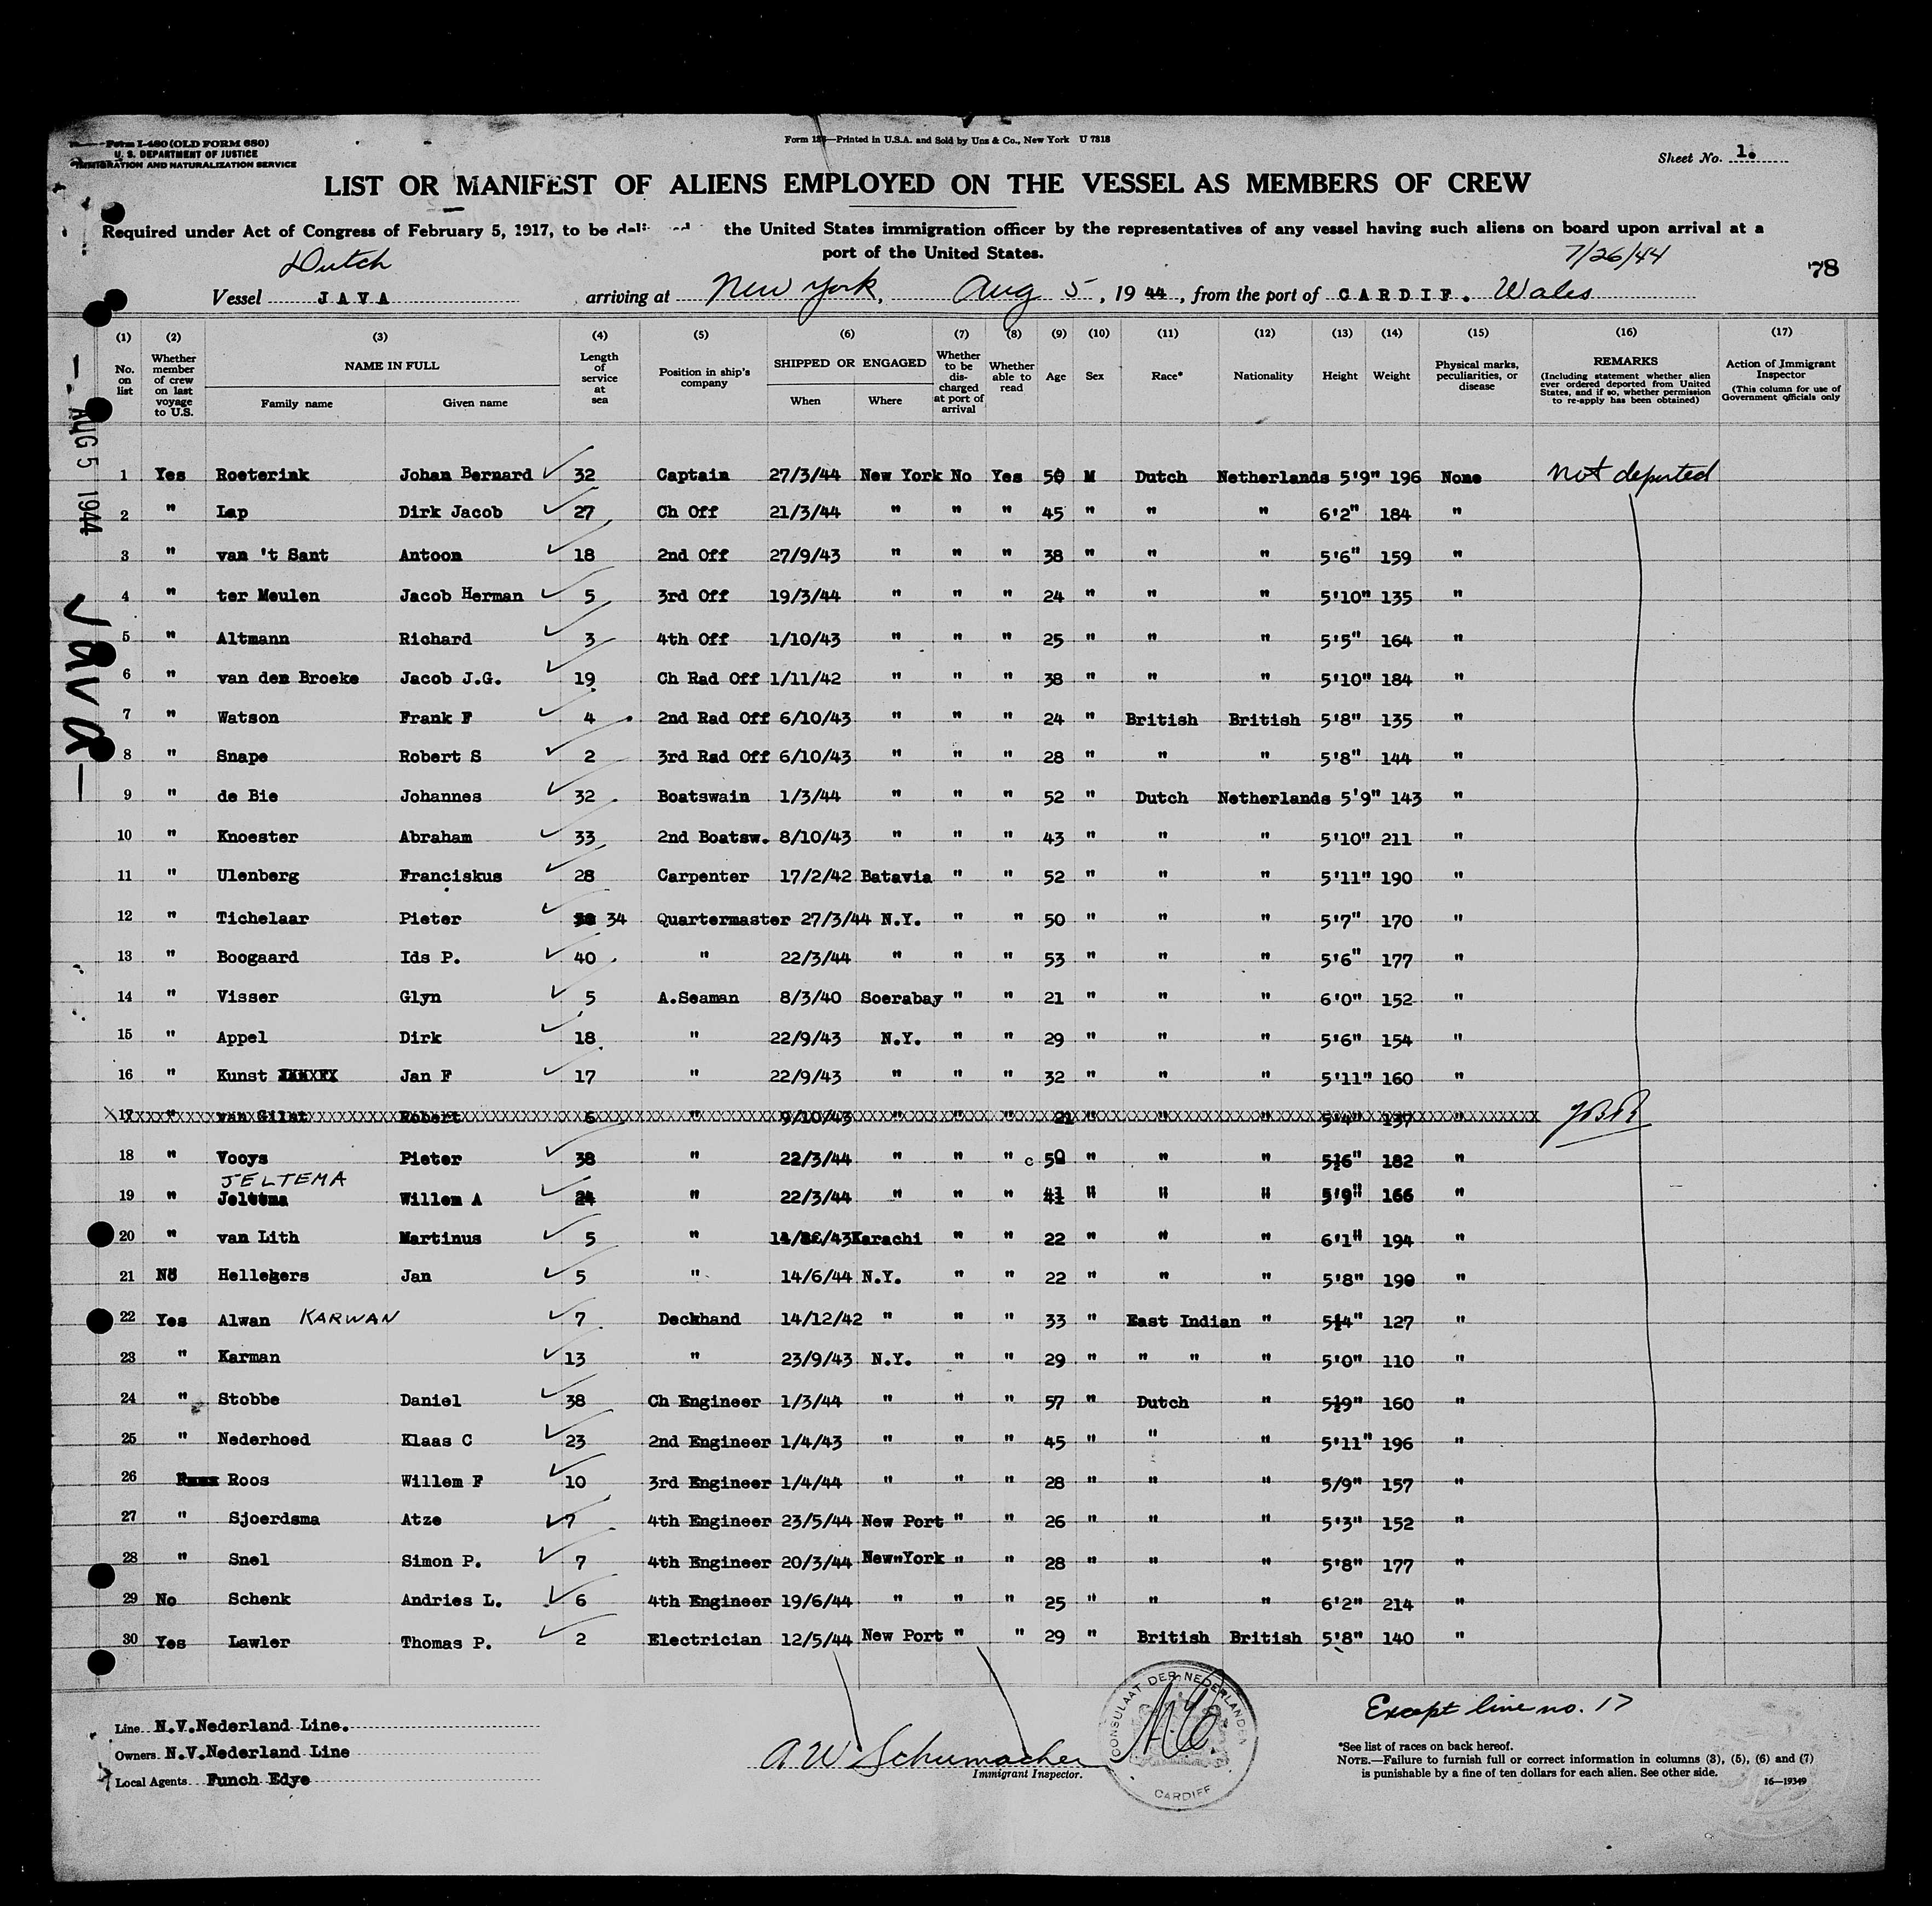 Form I-480 (OLD FORM 680)
U. S. DEPARTMENT OF JUSTICE
IMMIGRATION AND NATURALIZATION SERVICE
Form —Printed in U.S.A. and Sold by Unz & Co., New York U 7818
Sheet No. 1.
LIST OR MANIFEST OF ALIENS EMPLOYED ON THE VESSEL AS MEMBERS OF CREW
Required under Act of Congress of February 5, 1917, to be the United States immigration officer by the representatives of any vessel having such aliens on board upon arrival at a
port of the United States.
Dutch 7/26/44
78
Vessel JAVA arriving at New York, Aug 5, 1944, from the port of CARDIF. Wales
(1) (2) (3) (4) (5) (6) (7) (8) (9) (10) (11) (12) (13) (14) (15) (16) (17)
No. on list Whether member of crew on last voyage to U.S. NAME IN FULL Family name Given name Length of service at sea Position in ship's company SHIPPED OR ENGAGED When Where Whether to be discharged at port of arrival Whether able to read Age Sex Race* Nationality Height Weight Physical marks, peculiarities, or disease REMARKS (Including statement whether alien ever ordered deported from United States, and if so, whether permission to re-apply has been obtained) Action of Immigrant Inspector (This column for use of Government officials only
1 Yes Roeterink Johan Bernard 32 Captain 27/3/44 New York No Yes 50 M Dutch Netherlands 5'9" 196 None Not deported
2 " Lap Dirk Jacob 27 Ch Off 21/3/44 " " " 45 " " " 6'2" 184 "
3 " van 't Sant Antoon 18 2nd Off 27/9/43 " " " 38 " " " 5'6" 159 "
4 " ter Meulen Jacob Herman 5 3rd Off 19/3/44 " " " 24 " " " 5'10" 135 "
5 " Altmann Richard 3 4th Off 1/10/43 " " " 25 " " " 5'5" 164 "
6 " van den Broeke Jacob J.G. 19 Ch Rad Off 1/11/42 " " " 38 " " " 5'10" 184 "
7 " Watson Frank F 4 2nd Rad Off 6/10/43 " " " 24 " British British 5'8" 135 "
8 " Snape Robert S 2 3rd Rad Off 6/10/43 " " " 28 " " " 5'8" 144 "
9 " de Bie Johannes 32 Boatswain 1/3/44 " " " 52 " Dutch Netherlands 5'9" 143 "
10 " Knoester Abraham 33 2nd Boatsw. 8/10/43 " " " 43 " " " 5'10" 211 "
11 " Ulenberg Franciskus 28 Carpenter 17/2/42 Batavia " " 52 " " " 5'11" 190 "
12 " Tichelaar Pieter 34 Quartermaster 27/3/44 N.Y. " " 50 " " " 5'7" 170 "
13 " Boogaard Ids P. 40 " 22/3/44 " " " 53 " " " 5'6" 177 "
14 " Visser Glyn 5 A.Seaman 8/3/40 Soerabay " " 21 " " " 6'0" 152 "
15 " Appel Dirk 18 " 22/9/43 N.Y. " " 29 " " " 5'6" 154 "
16 " Kunst Jan F 17 " 22/9/43 " " " 32 " " " 5'11" 160 "
17 " van Gilst Robert 6 " 9/10/43 " " " 21 " " " 5'4" 137 "
18 " Vooys Pieter 38 " 22/3/44 " " " c 50 " " " 5'6" 182 "
JELTEMA
19 " Jeltema Willem A 24 " 22/3/44 " " " 41 " " " 5'9" 166 "
20 " van Lith Martinus 5 " /43 Karachi " " 22 " " " 6'1" 194 "
21 No Hellekers Jan 5 " 14/6/44 N.Y. " " 22 " " " 5'8" 190 "
22 Yes Alwan KARWAN 7 Deckhand 14/12/42 " " " 33 " East Indian " 5'4" 127 "
23 " Karman 13 " 23/9/43 N.Y. " " 29 " " " " 5'0" 110 "
24 " Stobbe Daniel 38 Ch Engineer 1/3/44 " " " 57 " Dutch " 5'9" 160 "
25 " Nederhoed Klaas C 23 2nd Engineer 1/4/43 " " " 45 " " " 5'11" 196 "
26 Roos Willem F 10 3rd Engineer 1/4/44 " " " 28 " " " 5/9" 157 "
27 " Sjoerdsma Atze 7 4th Engineer 23/5/44 New Port " " 26 " " " 5'3" 152 "
28 " Snel Simon P. 7 4th Engineer 20/3/44 New"York " " 28 " " " 5'8" 177 "
29 No Schenk Andries L. 6 4th Engineer 19/6/44 " " " 25 " " " 6'2" 214 "
30 Yes Lawler Thomas P. 2 Electrician 12/5/44 New Port " " 29 " British British 5'8" 140 "
Line N.V.Nederland Line.
Owners N.V.Nederland Line
Local Agents Funch Edye
A W Schumacher
Immigrant Inspector.
CONSULAAT DER NEDERLANDEN
CARDIFF
Except line no. 17
*See list of races on back hereof.
NOTE.—Failure to furnish full or correct information in columns (3), (5), (6) and (7)
is punishable by a fine of ten dollars for each alien. See other side.
16—19349
AUG 5 1944
Java